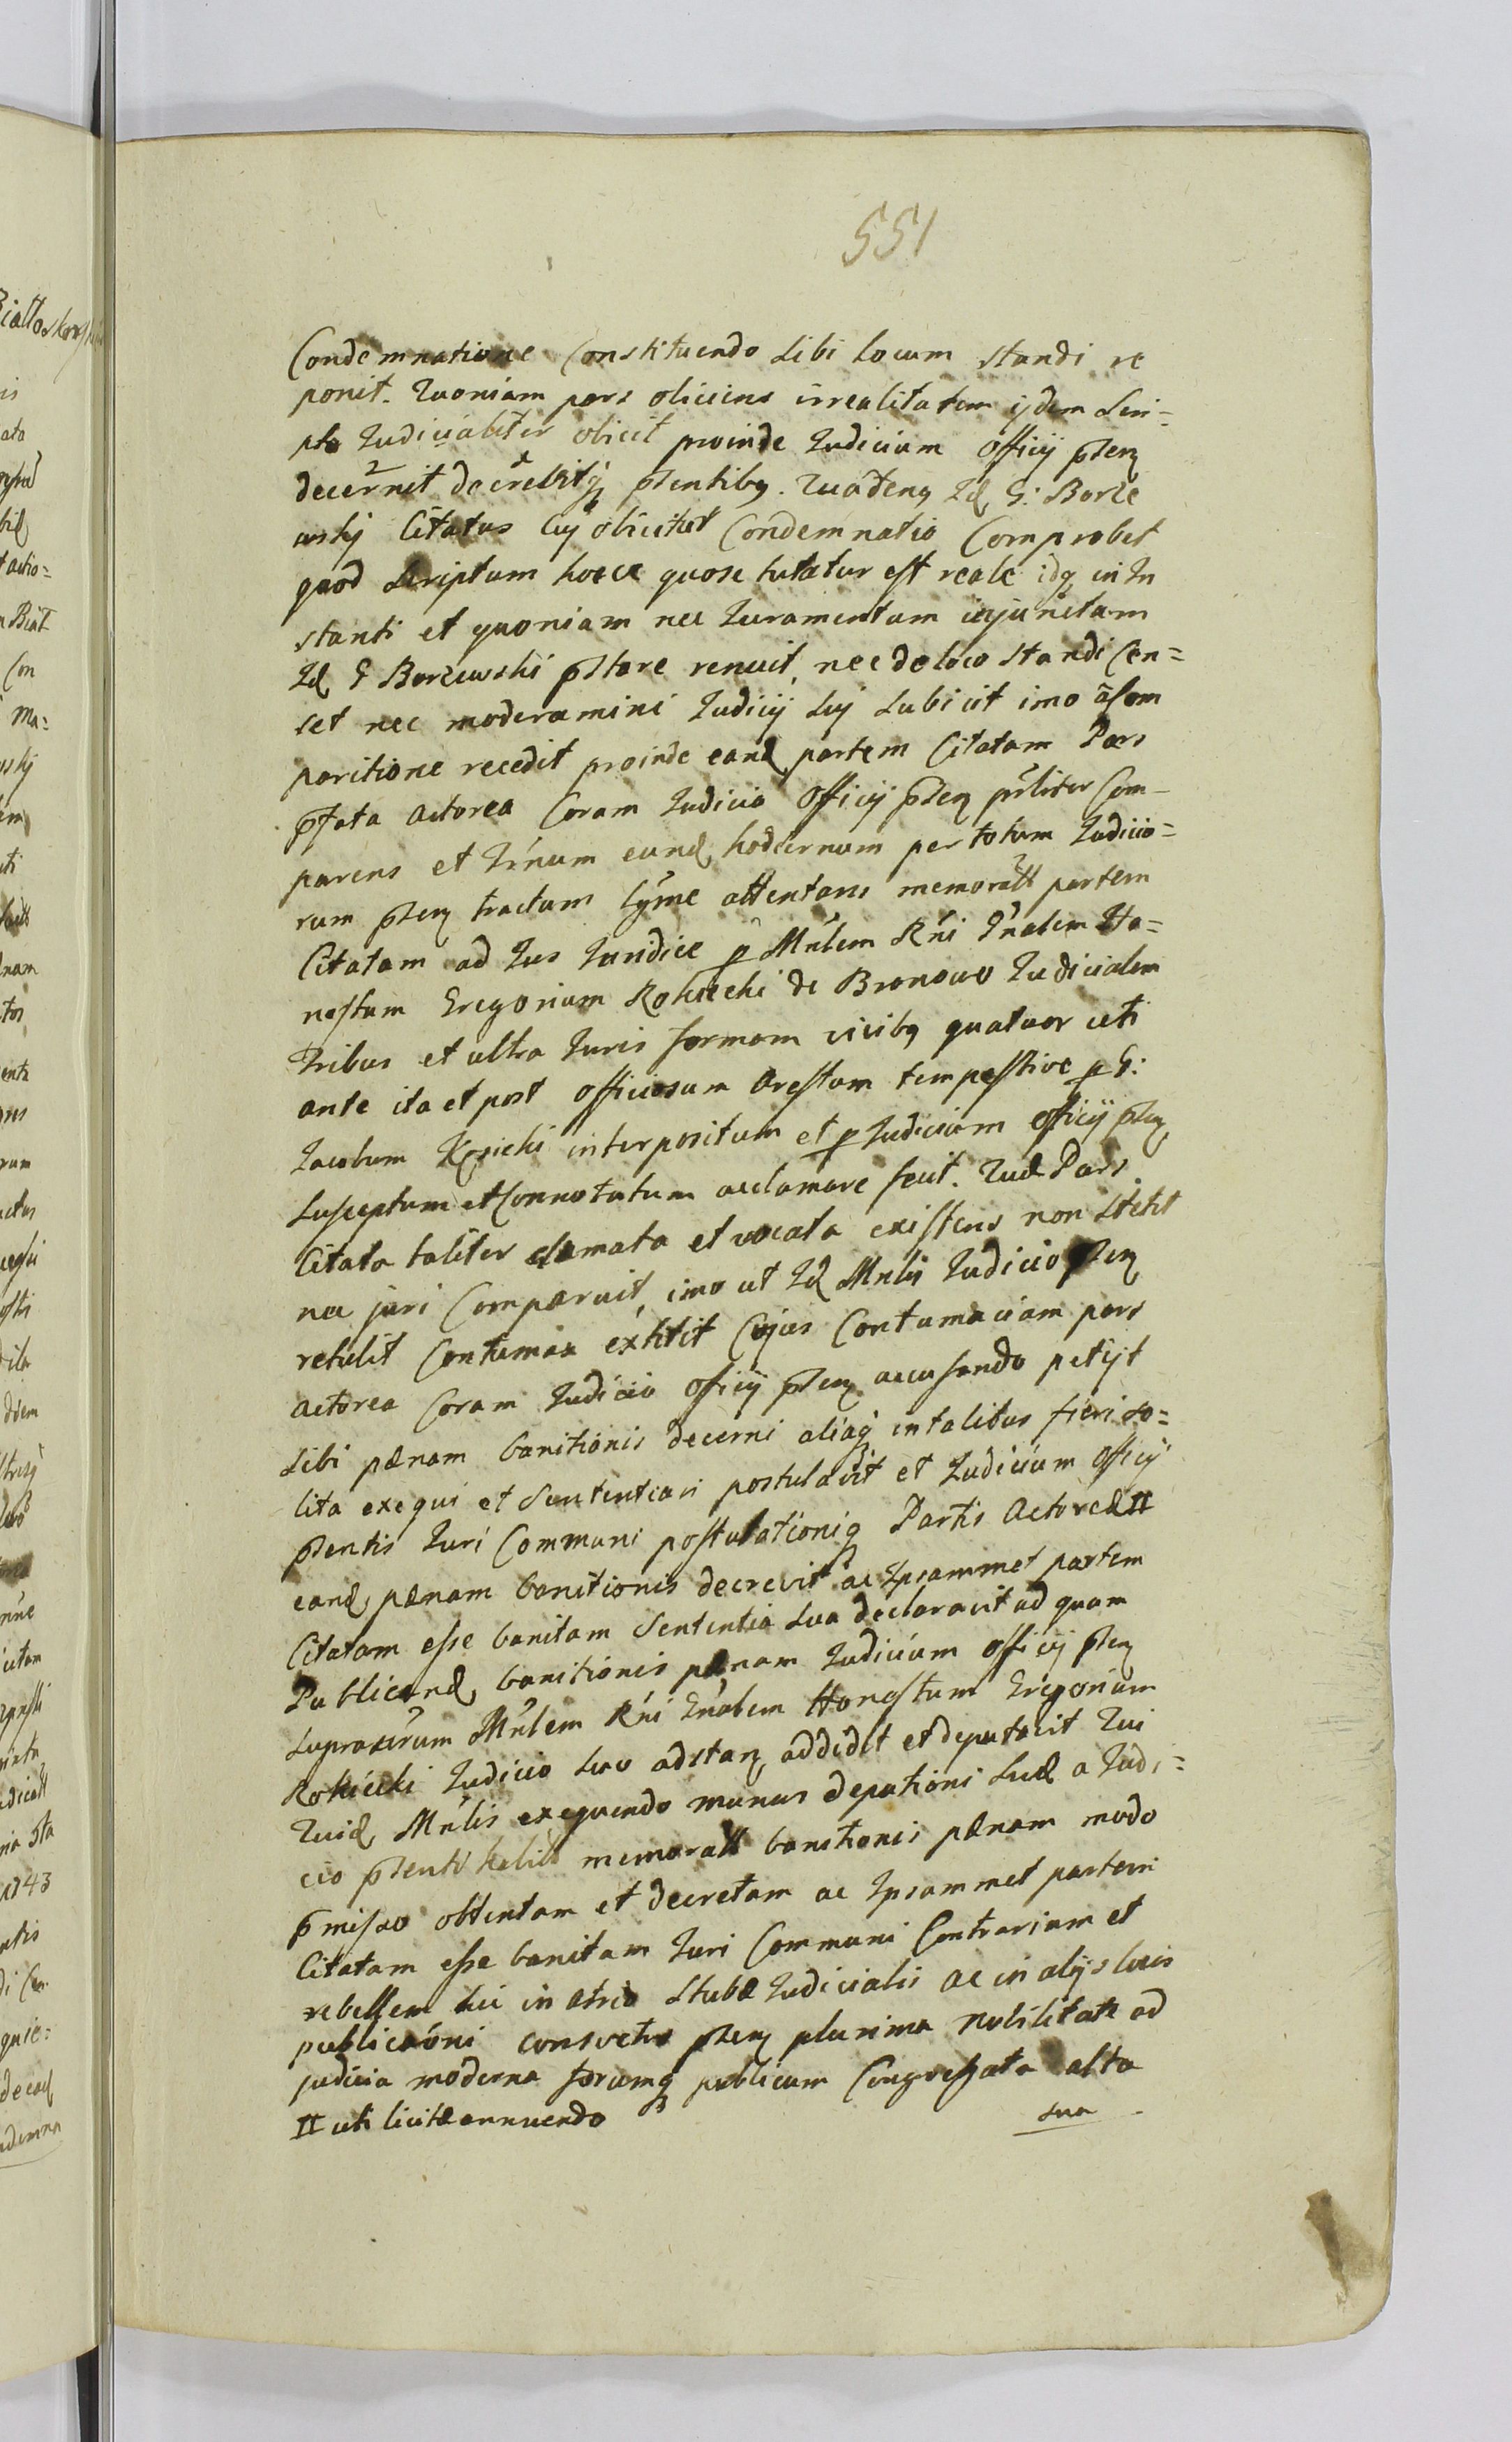 551
Condemnatione Constituendo Sibi Locum standi re
ponit. Quoniam pars obiiciens irrealitatem ijdem Scri=
pto Iudicialiter obiicit proinde Iudicium Officij pñtq
decernit decrevitq pñtentibq. Quatenq Id G: Borze
wskij Citatus Cuj obiicitur Condemnatio Comprobet
quod Scriptum hocce quose tutatur est reale idq in In
stanti et quoniam nec Iuramentum injunctum
Id G Borzewski pstare renuit, nec de loco standi Cen=
set nec moderamini Iudicij Suj Subicit imo a Com
paritione recedit proinde eand partem Citatam Pars
pfata Actorea Coram Iudicio Officij pñtq pñliter Com-
parens et Trnum eund hodiernum per totum Iudicio=
rum pñtq tractum Lgme attentans memoratt partem
Citatam ad Ius Iuridice p Mnlem Rni Gnalem Ho=
nestum Gregorium Rokiecki de Bronowo Iudicialem
Tribus et ultra Iuris formam vicibq quatuor uti
ante ita et post Officiosum Arestum tempestive p G:
Iacobum Kosicki interpositum et p Iudicium officij pñtq
Susceptum et Connotatum acclamare fecit. Quæ Pars
Citata taliter clamata et vocata existens non Stetit
nec juri Comparuit, imo ut Id Mnlis Iudicio pñtq
retulit Contumax extitit Cujus Contumaciam pars
actorea Coram Iudicio Officij pñtq accusando petijt
Sibi pænam banitionis decerni aliaq in talibus fieri so=
lita exequi et Sententiari postulavit et Iudicium Officij
pñtentis Iuri Communi postulationiq Partis Actoreæ #
eand pænam banitionis decrevit ac Ipsammet partem
Citatam esse banitam Sententia Sua declaravit ad quam
Publicand banitionis pænam Iudicium Officij pñtq
Suprascrum Mnlem Rni Gnalem Honestum Gregorium
Rokiecki Iudicio Suo adstan addidit et deputavit Qui
Quid Mnlis exequendo munus deputioni Suæ a Iudi=
cio pñtenti memoratt banitionis pænam modo
pmisso obtentam et decretam ac Ipsammet partem
Citatam esse banitam Iuri Communi Contrariam et
rebellem Sui in atrio Stubæ Iudicialis ac in alijs locis
publicaoni consvetis pñtq plurima Nobilitate ad
judicia moderna forumq publicum Congregata alta
# uti licitæ annuendo sua